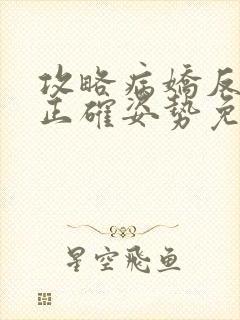 攻略病嬌反
正確姿勢免
星空飛鱼